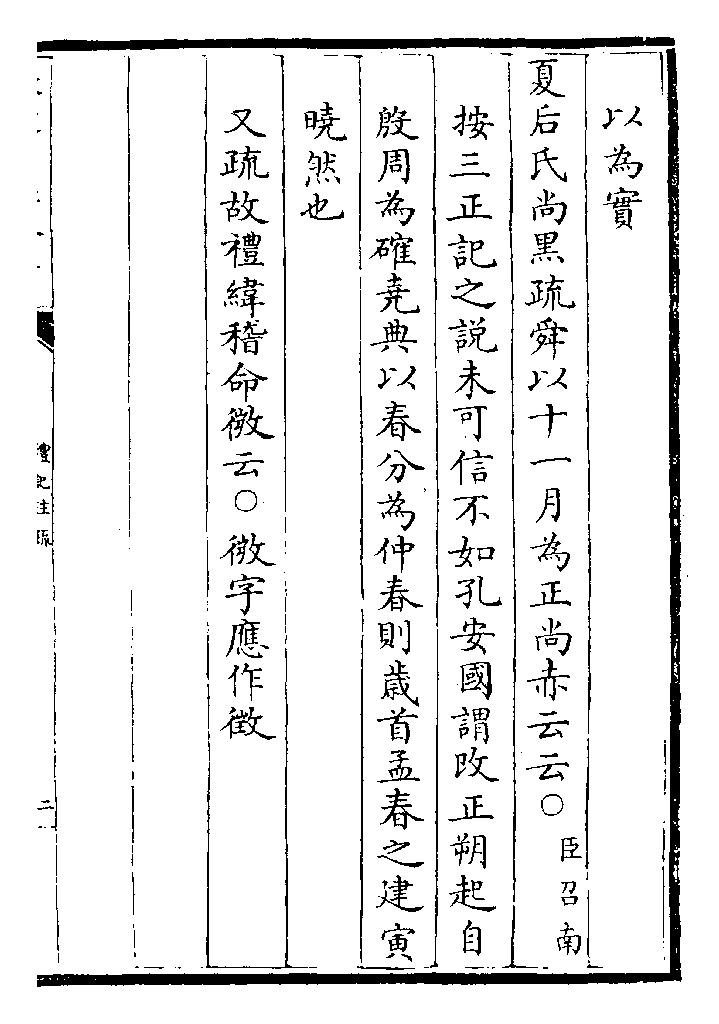 以為實
夏后氏尚黒疏舜以十一月為正尚赤云云○臣召南
按三正記之説未可信不如孔安國謂改正朔起自
殷周為確堯典以春分為仲春則歲首孟春之建寅
曉然也
又疏故禮緯稽命微云○微字應作徴
禮記注疏
二